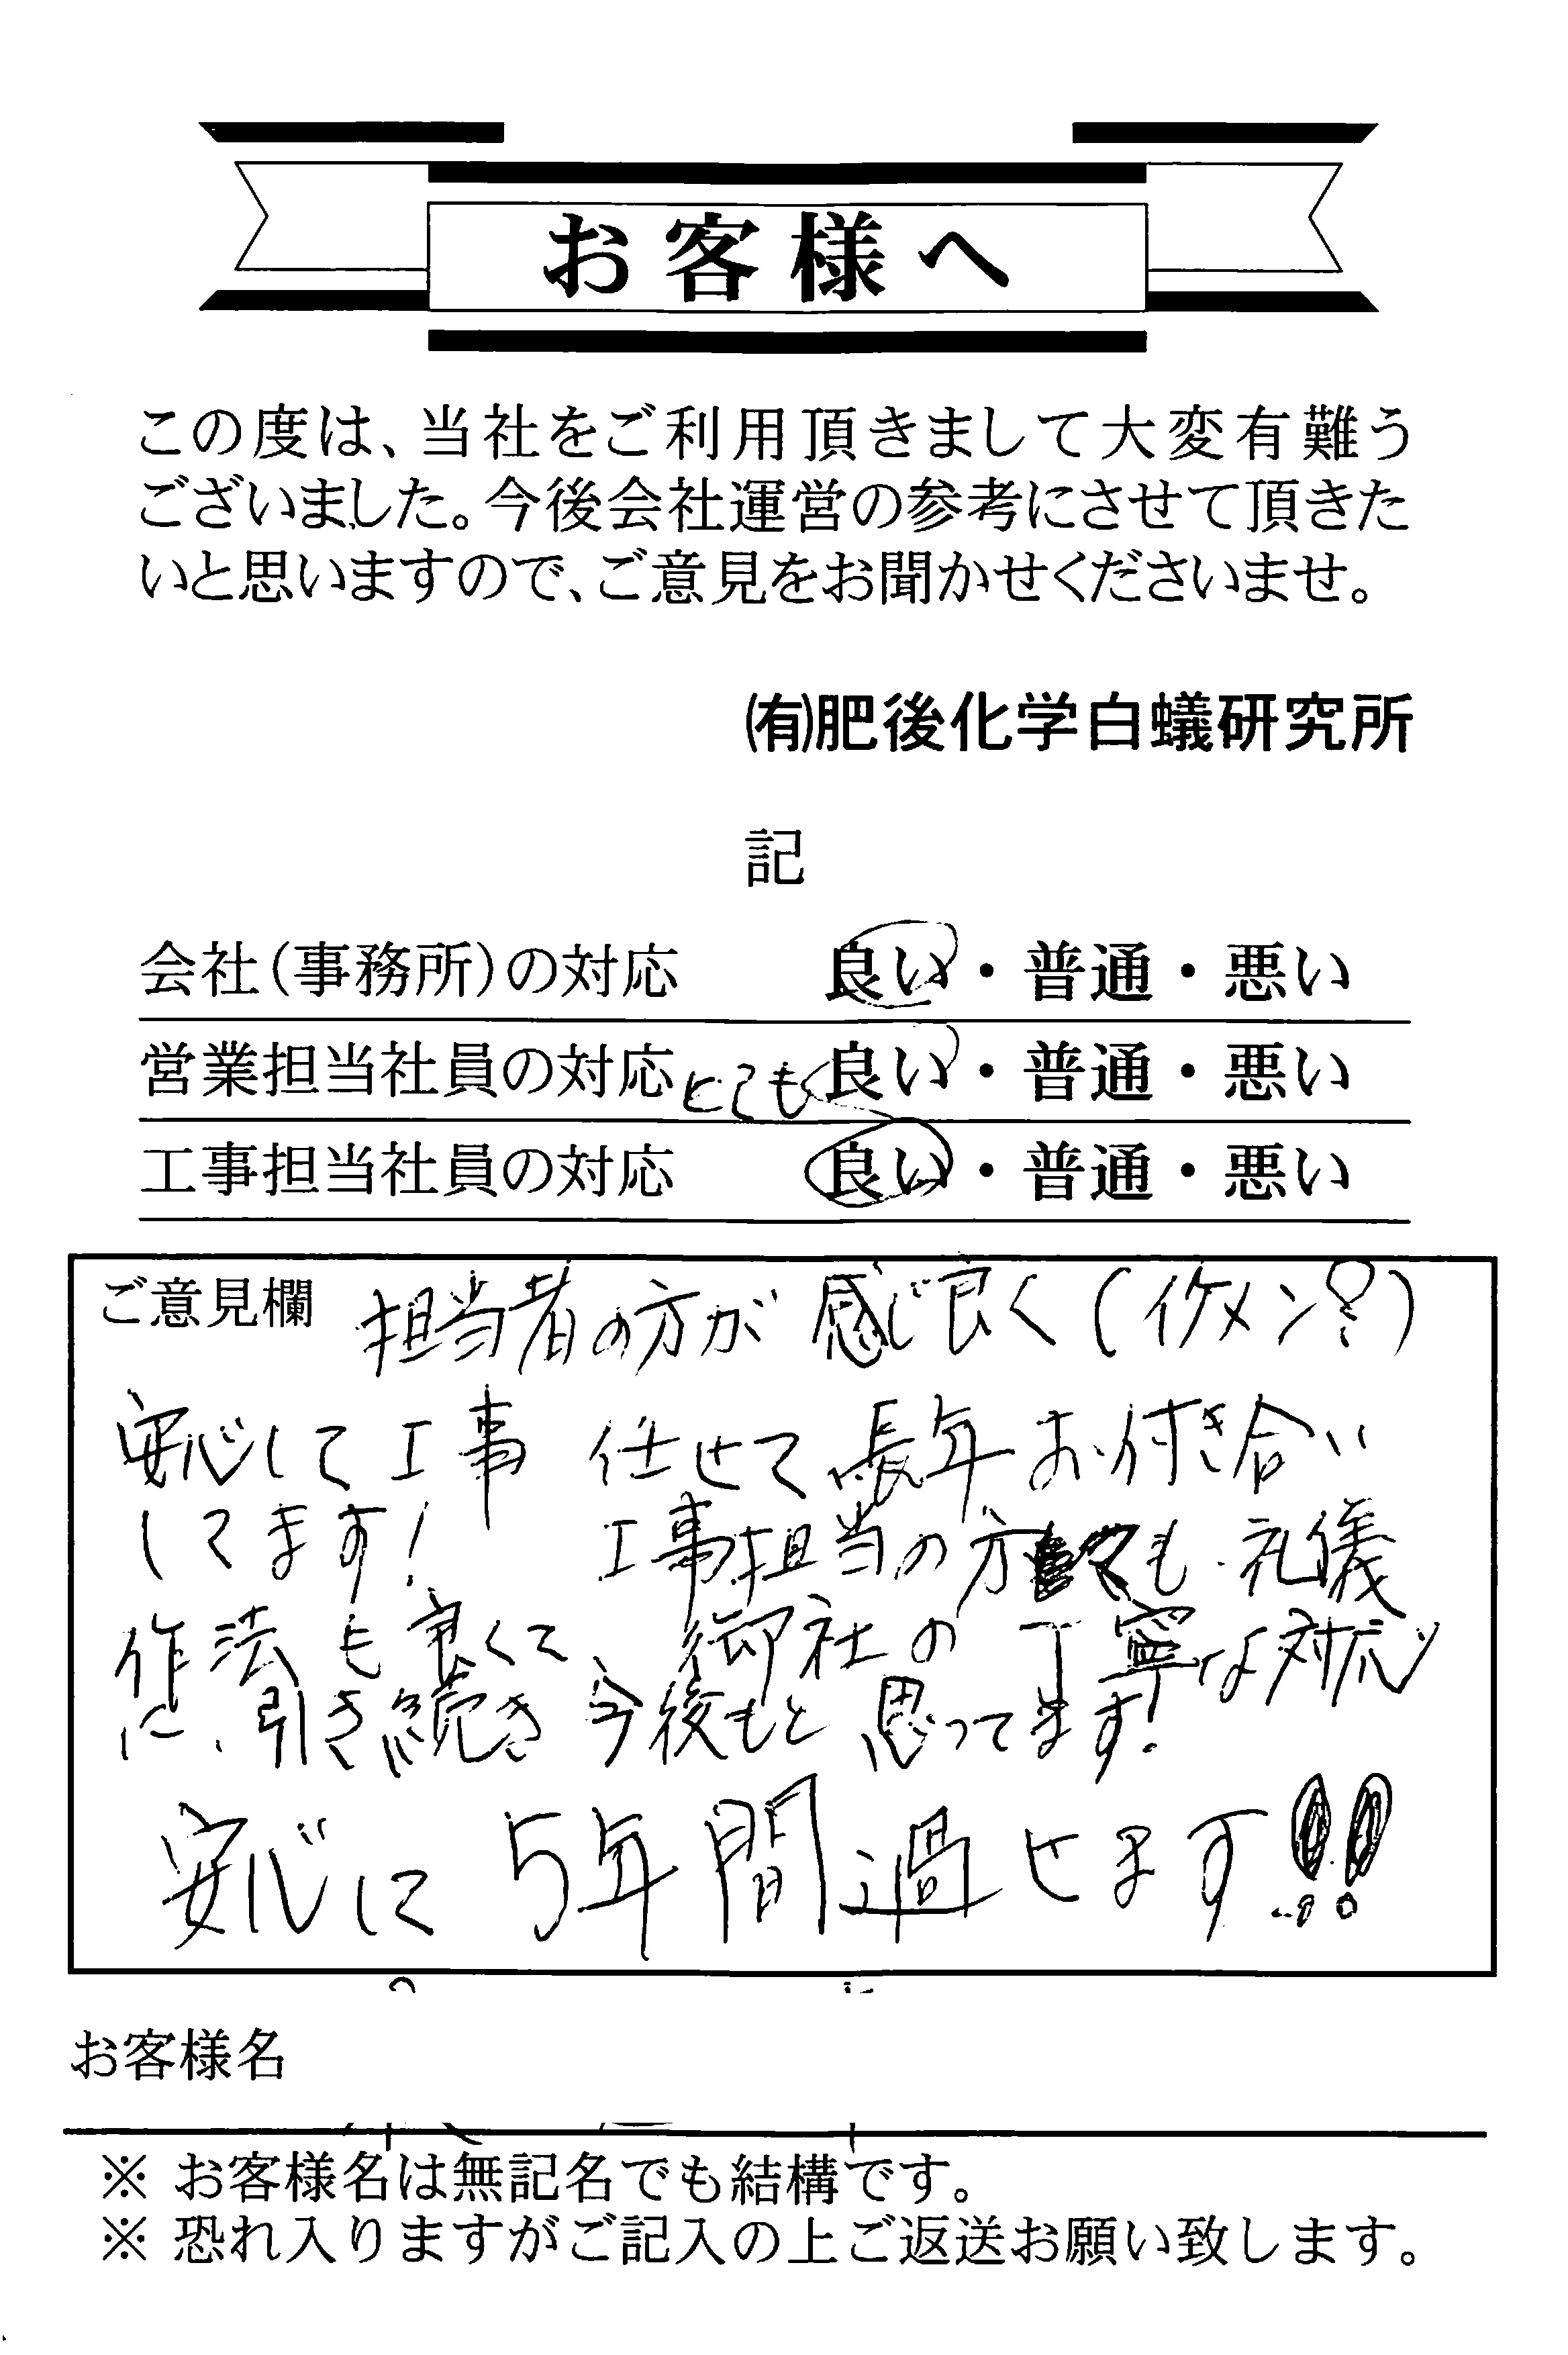 お客様へ
この度は、当社をご利用頂きまして大変有難う
ございました。今後会社運営の参考にさせて頂きた
いと思いますので、ご意見をお聞かせくださいませ。
㈲肥後化学白蟻研究所
記
会社(事務所)の対応 良い・普通・悪い
営業担当社員の対応 とても 良い・普通・悪い
工事担当社員の対応 良い・普通・悪い
ご意見欄 担当者の方が 感じ良く (イケメン?)
安心して工事 任せて 長年お付き合い
してます! 工事担当の方も 礼儀
作法も良くて、御社の丁寧な対応
に、引き続き今後もと思ってます!
安心に5年間過せます!!
お客様名
※ お客様名は無記名でも結構です。
※ 恐れ入りますがご記入の上ご返送お願い致します。